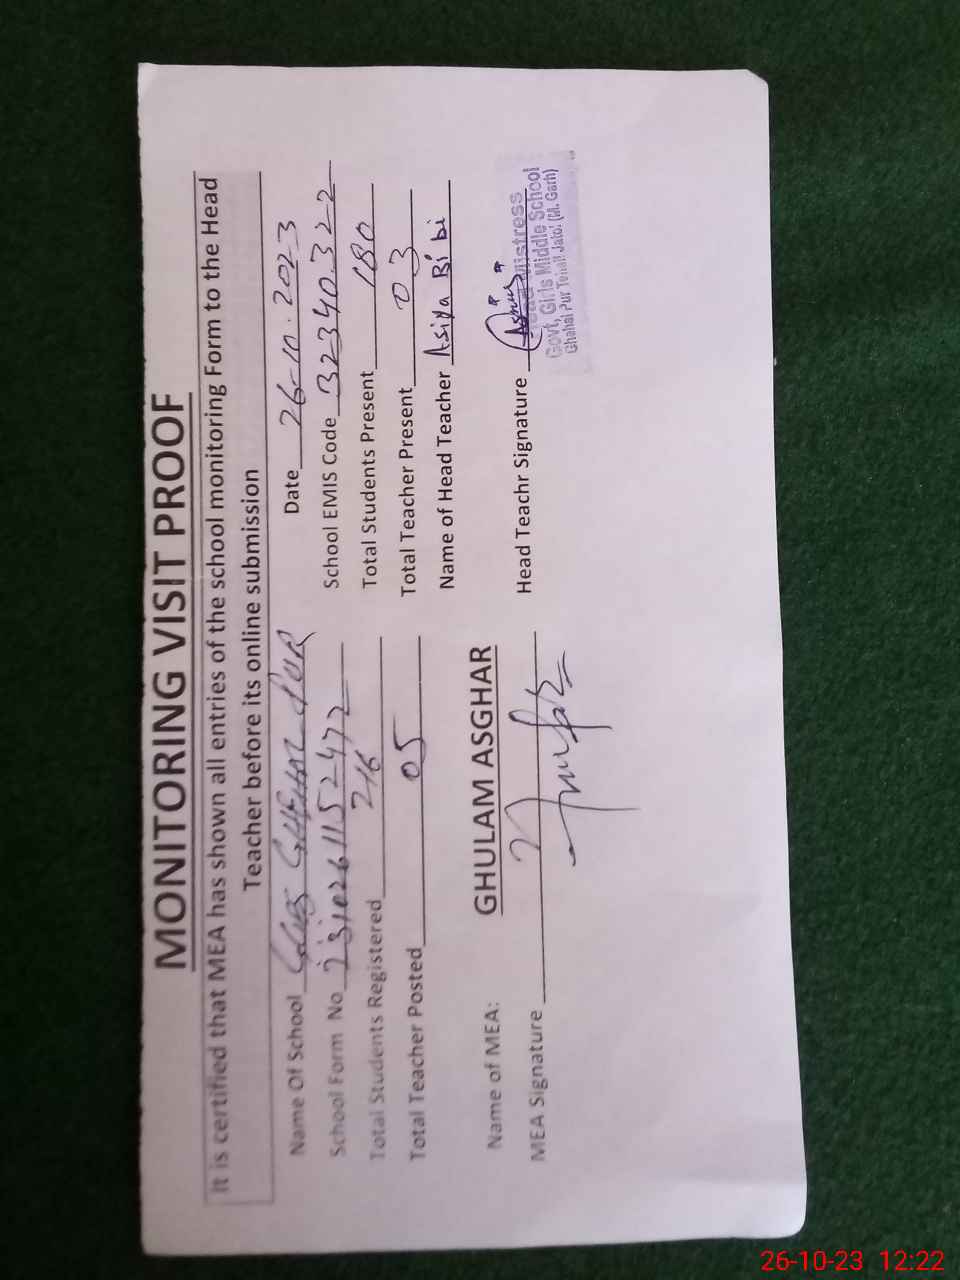 MONITORING VISIT PROOF
It is certified that MEA has shown all entries of the school monitoring Form to the Head
Teacher before its online submission
Name Of School GGES GHEHAL PUR Date 26-10-2023
School Form No 2310261152472 School EMIS Code 32340322
Total Students Registered 216 Total Students Present 180
Total Teacher Posted 05 Total Teacher Present 03
Name of Head Teacher Asiya Bibi
Name of MEA: GHULAM ASGHAR
MEA Signature Head Teachr Signature
Head Mistress
Govt, Girls Middle School
Ghahal Pur Tehsil Jatoi (M. Garh)
26-10-23 12:22